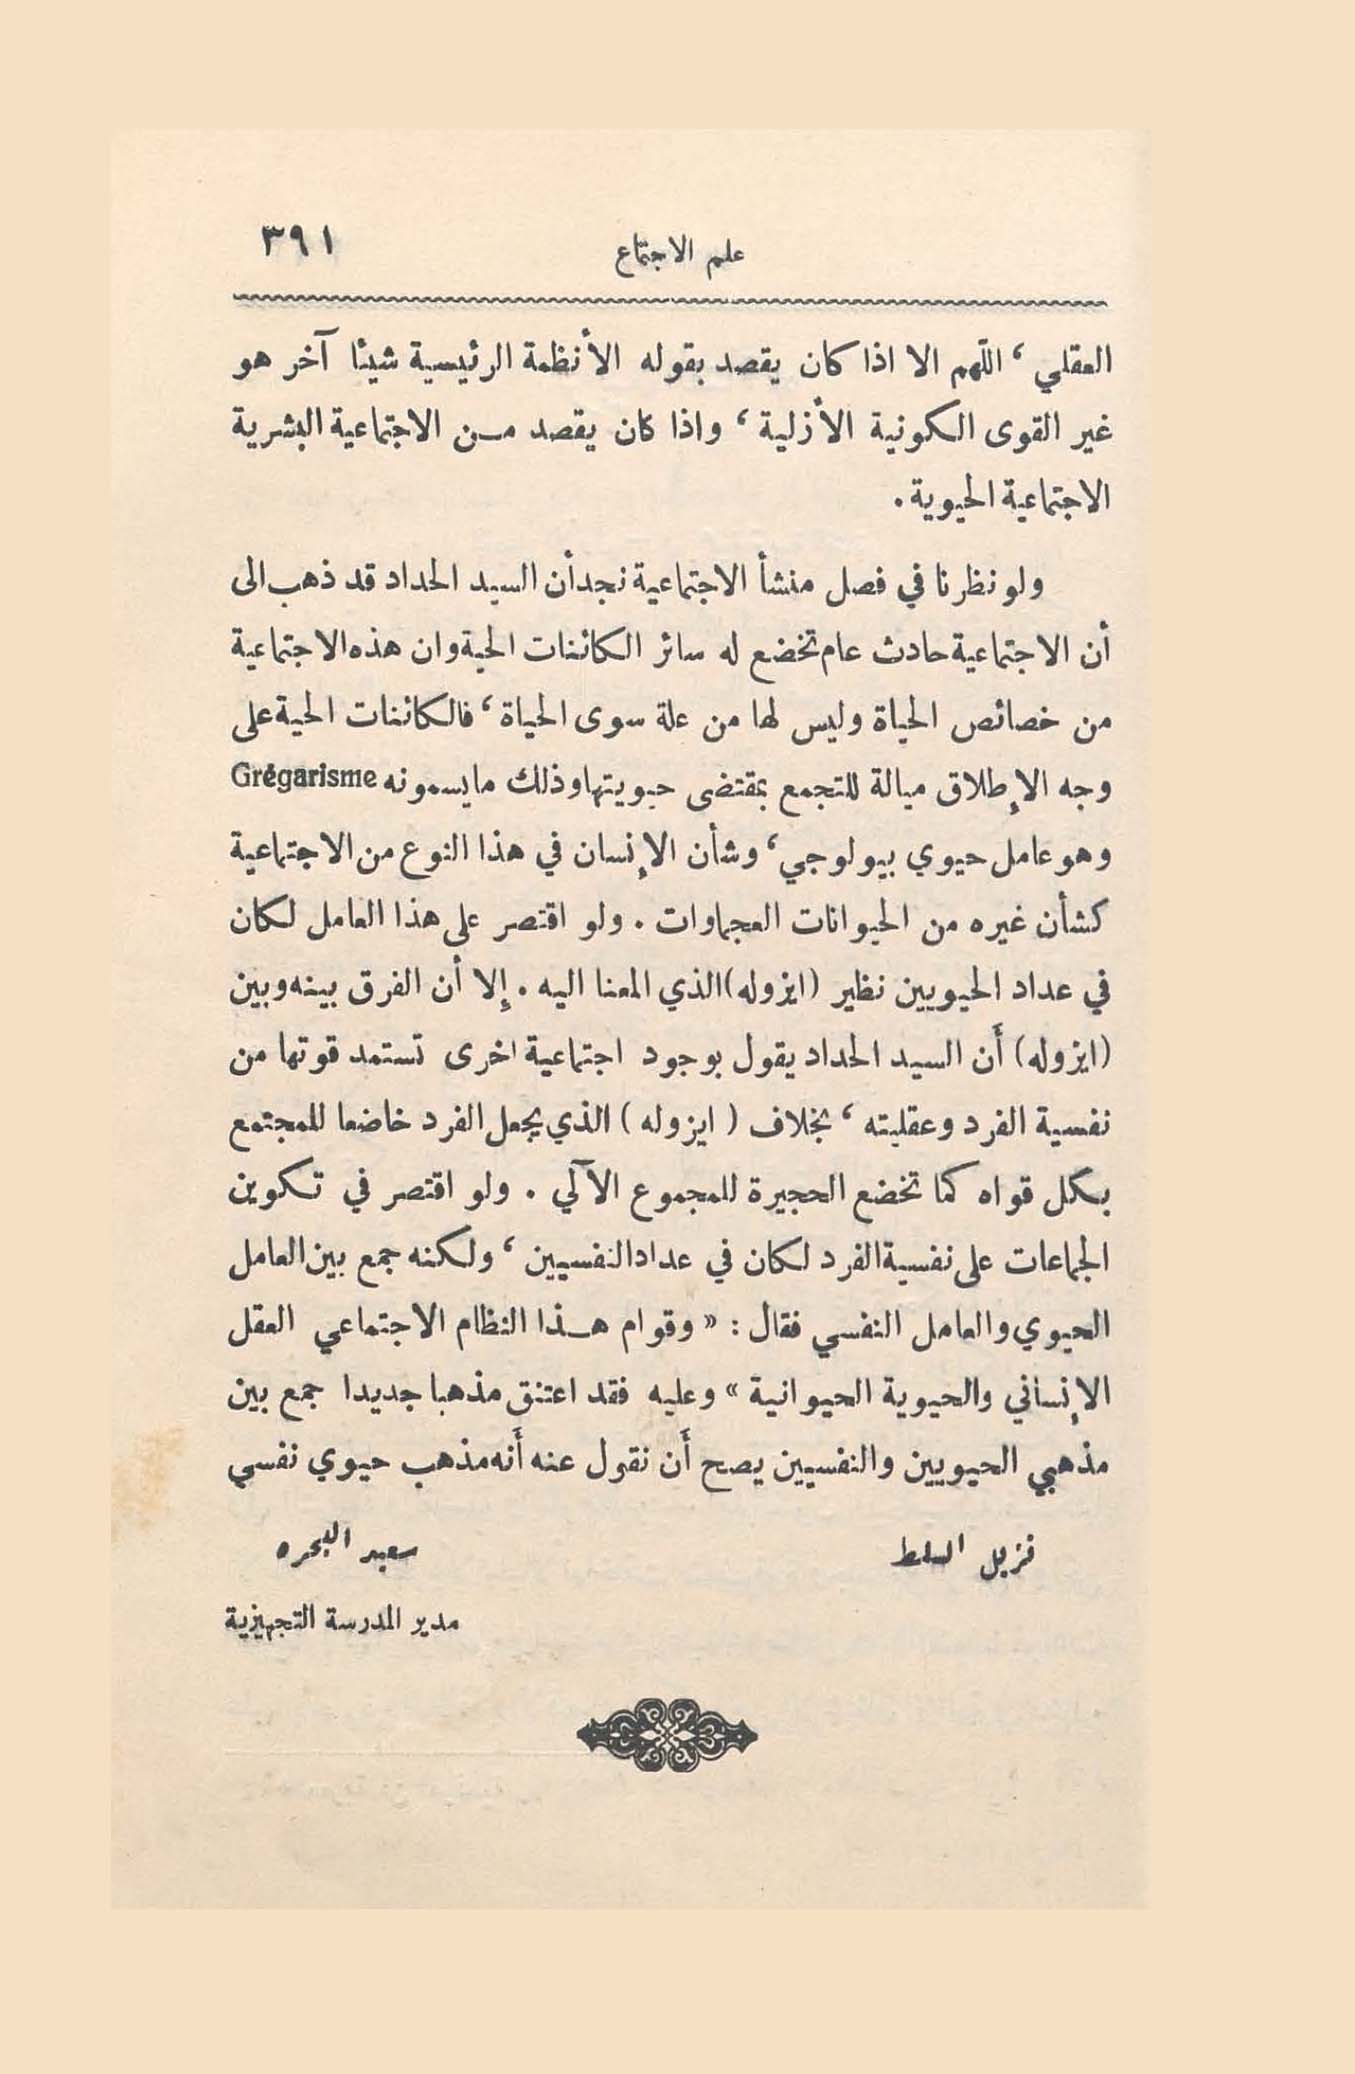 علم الاجتماع ٣٩١
العقلي، اللّهم الا اذا كان يقصد بقوله الأنظمة الرئيسية شيئا آخر هو
غير القوى الكونية الأزلية، واذا كان يقصد من الاجتماعية البشرية
الاجتماعية الحيوية.
ولو نظرنا في فصل منشأ الاجتماعية نجد أن السيد الحداد قد ذهب الى
أن الاجتماعية حادث عام تخضع له سائر الكائنات الحية وان هذه الاجتماعية
من خصائص الحياة وليس لها من علة سوى الحياة، فالكائنات الحية على
وجه الإطلاق ميالة للتجمع بمقتضى حيويتها وذلك ما يسمونه Grégarisme
وهو عامل حيوي بيولوجي، وشأن الإنسان في هذا النوع من الاجتماعية
كشأن غيره من الحيوانات العجماوات. ولو اقتصر على هذا العامل لكان
في عداد الحيويين نظير (ايزوله) الذي المعنا اليه. إلا أن الفرق بينه وبين
(ايزوله) أن السيد الحداد يقول بوجود اجتماعية اخرى تستمد قوتها من
نفسية الفرد وعقليته، بخلاف (ايزوله) الذي يجعل الفرد خاضعا للمجتمع
بكل قواه كما تخضع الحجيرة للمجموع الآلي. ولو اقتصر في تكوين
الجماعات على نفسية الفرد لكان في عداد النفسيين، ولكنه جمع بين العامل
الحيوي والعامل النفسي فقال: «وقوام هذا النظام الاجتماعي العقل
الإنساني والحيوية الحيوانية» وعليه فقد اعتنق مذهبا جديدا جمع بين
مذهبي الحيويين والنفسيين يصح أن نقول عنه أنه مذهب حيوي نفسي
نزيل السلط سعيد البحره
مدير المدرسة التجهيزية